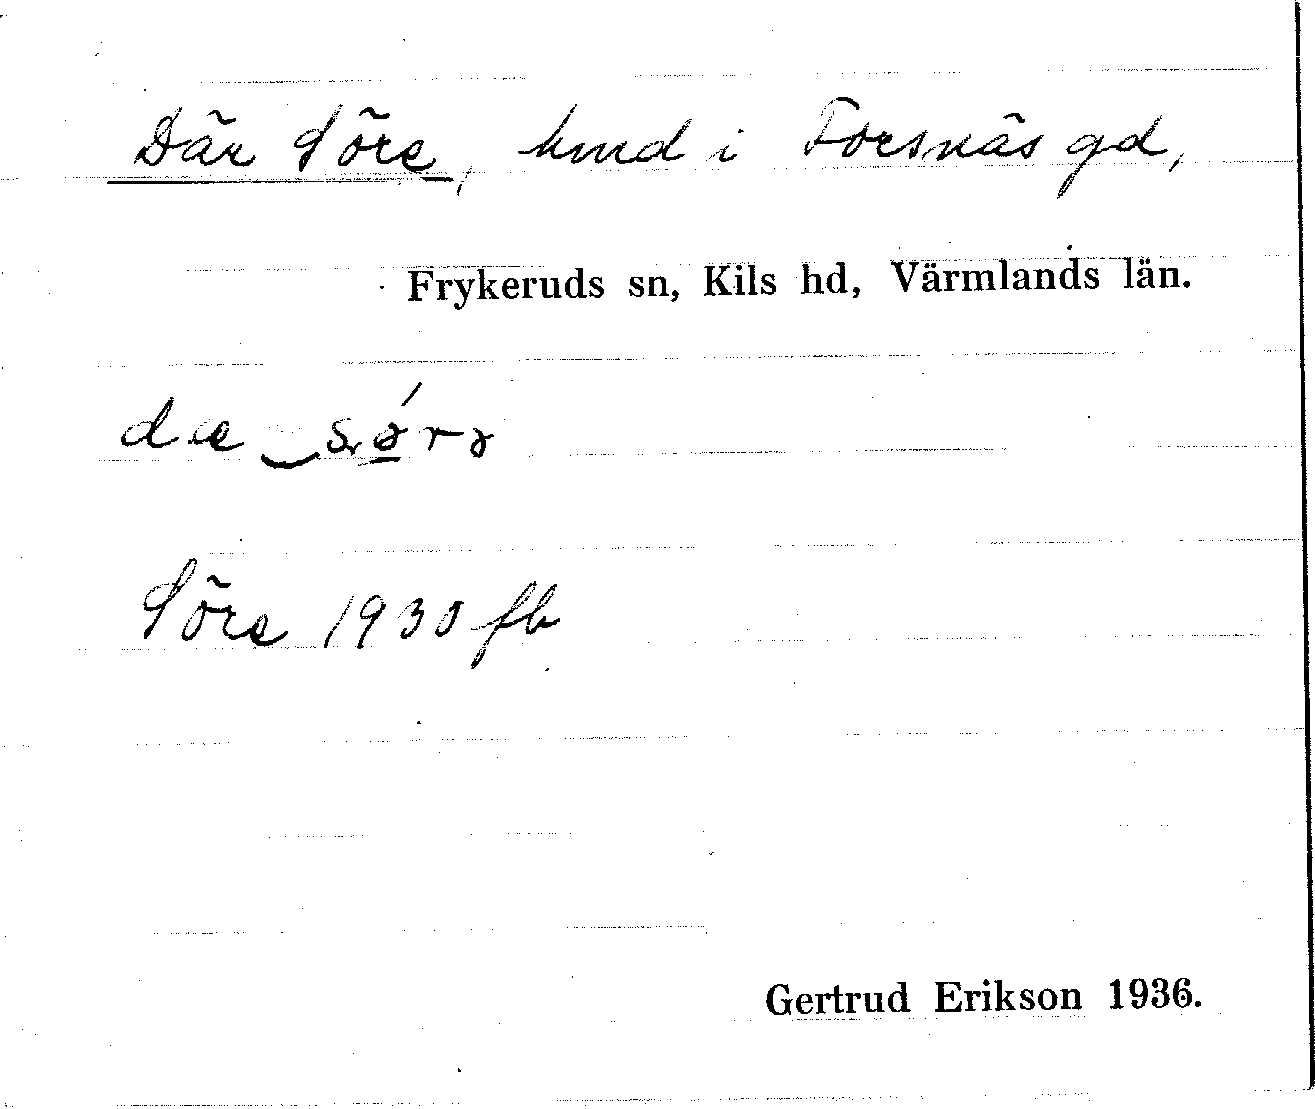 Där Söre, hmd i Forsnäs gd,
Frykeruds sn, Kils hd, Värmlands län.
Söre 1930 fb
Gertrud Erikson 1936.